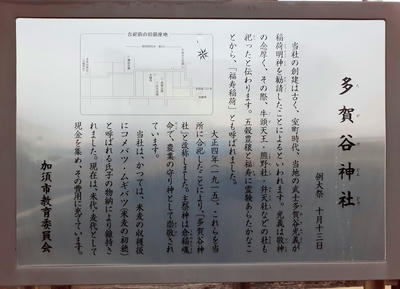 多賀谷神社
例大祭 十月十三日
当社の創建は古く、室町時代、当地の武士多賀谷光義が
稲荷明神を勧請したことによるといわれます。光義は敬神
の念厚く、その際、牛頭天王・熊野社・弁天社などの社も
祀ったと伝わります。五穀豊穣と福寿に霊験あらたかなこ
とから、「福寿稲荷」とも呼ばれました。
大正四年(一九一五)、これらを当
所に合祀したことにより「多賀谷神
社」と改称しました。主祭神は倉稲魂
命で、農業の守り神として崇敬され
ています。
当社は、かつては、米麦の収穫後
にコメハツ・ムギハツ(米麦の初穂)
と呼ばれる氏子の物納により維持さ
れました。現在は、米代、麦代として
現金を集め、その費用に充てています。
加須市教育委員会
合祀前の旧鎮座地